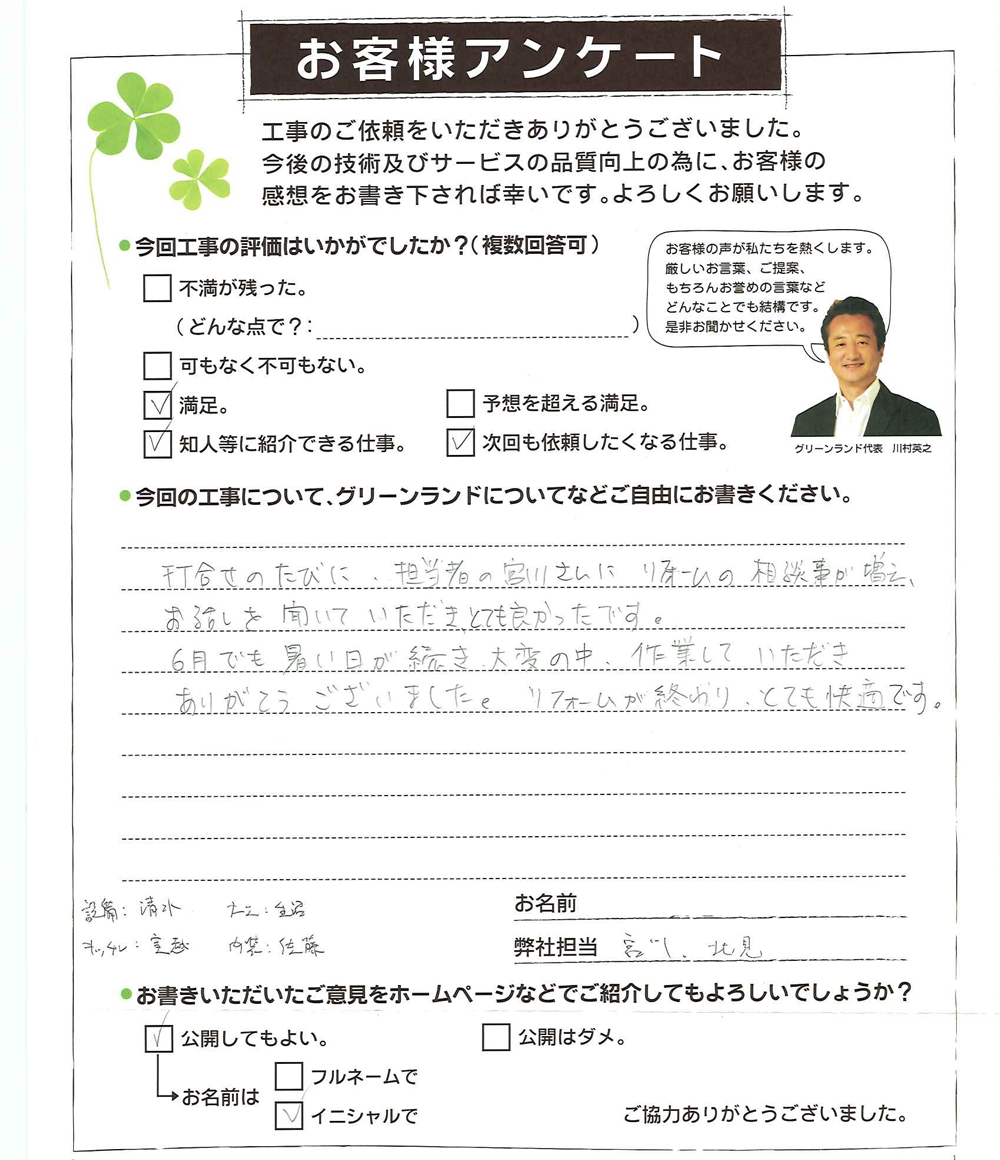 お客様アンケート
工事のご依頼をいただきありがとうございました。
今後の技術及びサービスの品質向上の為に、お客様の
感想をお書き下されば幸いです。よろしくお願いします。
●今回工事の評価はいかがでしたか？（複数回答可）
お客様の声が私たちを熱くします。
厳しいお言葉、ご提案、
もちろんお誉めの言葉など
どんなことでも結構です。
是非お聞かせください。
グリーンランド代表 川村英之
□不満が残った。
（どんな点で？： ）
□可もなく不可もない。
☑満足。 □予想を超える満足。
☑知人等に紹介できる仕事。 ☑次回も依頼したくなる仕事。
●今回の工事について、グリーンランドについてなどご自由にお書きください。
打合せのたびに、担当者の宮川さんに リフォームの 相談事が増え、
お話しを 聞いて いただき、とても良かったです。
6月でも 暑い日が 続き 大変の中、作業して いただき
ありがとう ございました。 リフォームが終わり、とても快適です。
設備：清水
キッチン：室越 内装：佐藤
お名前
弊社担当 宮川、北見
●お書きいただいたご意見をホームページなどでご紹介してもよろしいでしょうか？
☑公開してもよい。 □公開はダメ。
お名前は
□フルネームで
☑イニシャルで
ご協力ありがとうございました。